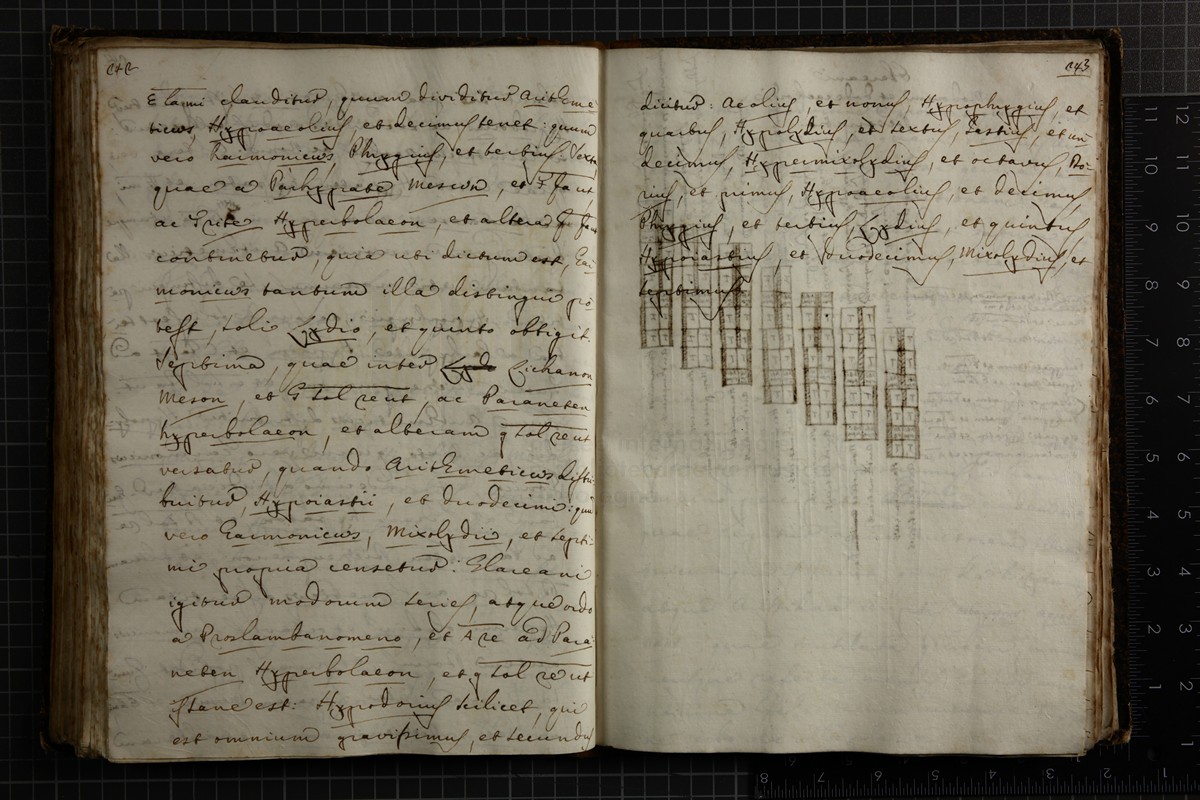 242
E lami clauditur, quum dividitur Arithme
ticus, Hypoaeolius, et decimus tenet: quum
vero harmonicus, Phrygius, et tertius. Sexta
quae a Parhypate Meson, et F fa ut,
ac Trite Hyperbolaeon, et altera f fa ut
continetur, quia uti dictum est, Har
monicus tantum illa distingui po
test, soli Lydio, et quinto obtigit.
Septima, quae inter Lichanon
Meson, et G sol re ut, ac Paraneten
hyperbolaeon, et alteram g sol re ut
versatur, quando Arithmeticus distri
buitur, Hypoiastii, et duodecimi: quum
vero Harmonicus, Mixolydii, et septi
mi propria censetur: Glareani
igitur modorum series, atque ordo
a Proslambanomeno, et A re ad Para
neten Hyperbolaeon, et g sol re ut
stare est: Hypodorius scilicet, qui
est omnium gravissimus, et secundus
243
dicitur: Aeolius, et nonus, Hypophrygius, et
quartus, Hypolydius, et sextus, Iastius, et un
decimus, Hypermixolydius, et octavus, Do
rius, et primus, Hypoaeolius, et decimus
Phrygius, et tertius, Lydius, et quintus
Hypoiastius, et duodecimus, Mixolydius, et
septimus.